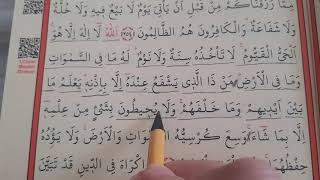 مِمَّا رَزَقْنَاكُمْ مِنْ قَبْلِ اَنْ يَأْتِيَ يَوْمٌ لَا بَيْعٌ فِيهِ وَلَا خُلَّةٌ
وَلَا شَفَاعَةٌ وَالْكَافِرُونَ هُمُ الظَّالِمُونَ ﴿٢٥٤﴾ اَللّٰهُ لَا اِلٰهَ اِلَّا هُوَ
اَلْحَيُّ الْقَيُّومُ لَا تَأْخُذُهُ سِنَةٌ وَلَا نَوْمٌ لَهُ مَا فِي السَّمٰوَاتِ
وَمَا فِي الْاَرْضِ مَنْ ذَا الَّذِي يَشْفَعُ عِنْدَهُ اِلَّا بِاِذْنِهِ يَعْلَمُ مَا
بَيْنَ اَيْدِيهِمْ وَمَا خَلْفَهُمْ وَلَا يُحِيطُونَ بِشَيْءٍ مِنْ عِلْمِهِ
اِلَّا بِمَا شَاءَ وَسِعَ كُرْسِيُّهُ السَّمٰوَاتِ وَالْاَرْضَ وَلَا يَؤُدُهُ
حِفْظُهُمَا اِكْرَاهَ فِي الدِّينِ قَدْ تَبَيَّنَ